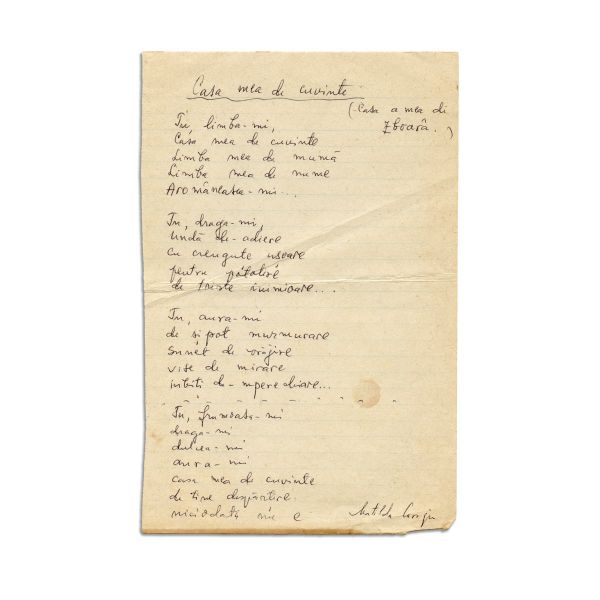 Casa mea de cuvinte
(Casa a mea di
zboară.)
Tu, limba-mi,
Casa mea de cuvinte
Limba mea de mumă
Limba mea de nume
Aromâneasca-mi...
Tu, draga-mi,
undă de-adiere
cu crengute usoare
pentru
de triste inimioare...
Tu, aura-mi
de sipot murmurare
sunet de vrăjire
vise de mirare
iubiti de-mperechiare...
Tu, frumoasa-mi
draga-mi
dulcea-mi
aura-mi
casa mea de cuvinte
de tine despărtire
niciodată nu e
Matilda